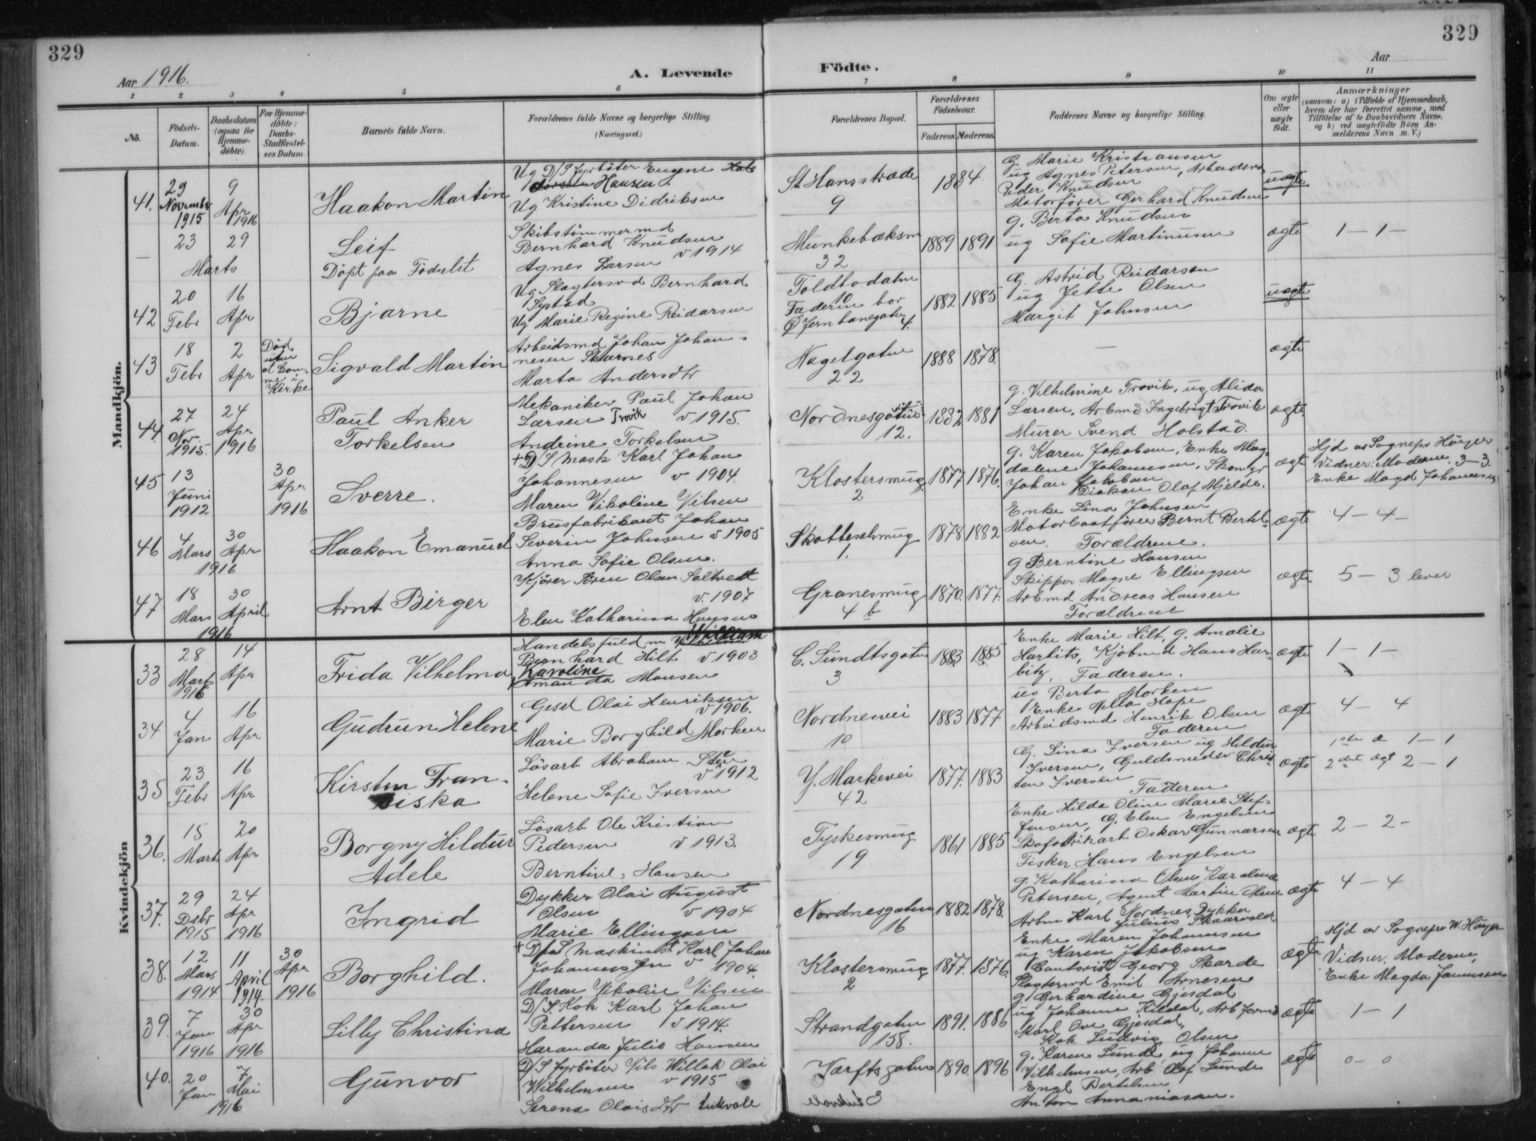 329
329
Aar 1916.
A. Levende
Födte.
Aar
1 2 3 4 5 6 7 8 9 10 11
No.
Födsels-Datum.
Daabsdatum (ogsaa for Hjemmedöbte).
For Hjemmedöbte: Daabs-Stadfæstelses Datum.
Barnets fulde Navn.
Forældrenes fulde Navne og borgerlige Stilling.
(Næringsvei.)
Forældrenes Bopæl.
Forældrenes Födselsaar.
Faderens. Moderens.
Fadderens Navne og borgerlige Stilling.
Om ægte eller uægte födt.
Anmærkninger
Mandkjön.
41. 29 November 1915 9 Apr 1916 Haakon Martin
Ug D/S fyrböter Eugene
Hansen
Ug Kristine Didriksen
St Hansstræde 9 1884
G. Marie Kristiansen
ug Agnes Petersen, Arbeidsm
Peder Knudsen
Motorförer Gerhard Knudsen
uægte
– 23 29 Marts Leif
Döpt paa Födselst
Skibstömmermd
Bernhard Knudsen
Agnes Larsen v 1914
Munkebæksm 32 1889 1891
g. Berta Knudsen
ug Sofie Martinusen
ægte 1 – 1 –
42 20 Febr 16 Apr Bjarne
Ug Slagtersvd Bernhard
Systad
Ug Marie Regine Reidarsen
Toldbodalm 10
Faderen bor
Ö Jernbanegaten 4
1882 1885
G. Astrid Reidarson
ug Jette Olsen
Margit Johnsen
uægte
43 18 Febr 2 Apr
Sigvald Martin
Arbeidsmd Johan Johan-
nesen Skarnes
Marta Andersdtr
Nagelgaten 22 1888 1878
–
ægte
44. 27 Nov 1915 24 Apr 1916 Paul Anker
Torkelsen
Mekaniker Paul Johan
Larsen Trovik v 1915.
Andrine Torkelsen
Nordnesgaten 12. 1882 1881
g. Vilhelmine Trovik, ug Alida
Larsen, Arbmd Ingebrigt Trovik
Murer Svend Holstad
ægte
45 13 Juni 1912 30 Apr 1916 Sverre.
+ D/S Mask Karl Johan
Johannesen v 1904.
Maren Nikoline Nilsen
Klostersmug 2 1877 1876.
g. Karen Jakobsen, Enke Mag-
dalene Johannesen,
Johan Jakobsen
Diakon Olaf Mjelde.
ægt
Hjd av Sognepr Höyer
Vidner: Moderen. 3–3.
Enke Magd Johannesen
46 4 Mars 30 Apr 1916 Haakon Emanuel
Brusfabrikant Johan
Severin Johnsen v 1905
Anna Sofie Olsen.
Skottesalmug 1. 1878 1882
Enke Lina Johnsen
Motorbaatförer Bernt Bertel-
sen. Forældrene.
ægte 4 – 4 –
47 18 Mars 30 April 1916 Arnt Birger
Kjörer Sven Olsen Saltvedt
v. 1907
Elen Katharina Hansen
Granesmug 4 b 1870. 1877.
g Berntine Hansen
Skipper Magne Ellingsen
Arbmd Andreas Hansen
Forældrene
ægte 5 – 3 lever
Kvindekjön
33 28 Mars 1916 14 Apr Frida Vilhelma
Handelsfuldm William
Bernhard Hilt v 1903
Karoline
Amanda Monsen
C. Sundtsgaten 3 1883 1885
Enke Marie Hilt, g. Amalie
Harbitz, Kjöbmd Hans Har-
bitz, Faderen.
ægte 1 – 1 –
34 4 Jan 16 Apr Gudrun Helene
Gesel Olai Henriksen
v 1906.
Marie Borghild Morken
Nordnesvei 10 1883 1877
ug Berta Morken
Enke Hope
Arbeidsmd Henrik Olsen
Faderen
ægt 4 – 4
35 23 Febr 16 Apr Kirsten Fran-
siska
Lösarb Abraham
v 1912
Helene Sofie Iversen
Y. Markevei 42 1877. 1883
G. Lina Iversen ug Hildur
Iversen, Guldsmedsv Chris-
ten Iversen Faderen
ægte 1 1 – 1
2 ægt 2 – 1
36. 15 Mart 20 Apr Borgny Hildur
Adele
Lösarb Ole Kristian
Pedersen v 1913.
Berntine Hansen
Tyskesmug 19 1861 1885
Enke Hilda Oline Marie Stef-
fensen, G. Elen Engelsen
Skofabrikarb Oskar Gunnarsen
Fisker Hans Engelsen
ægt 2 – 2 –
37. 29 Debr 1915 24 Apr 1916 Ingrid
Dykker Olai August
Olsen v 1904
Marie Ellingsen
Nordnesgaten 16 1882 1878.
g. Katharina Olsen Karoline
Petersen, Agent Martin Olsen
Arbm Karl Nordnes, Dykker
Julius Skaarvold
ægte 4 – 4
38. 12 Mars 1914 11 April 1914. 30 Apr 1916 Borghild.
+ D/S Maskinist Karl Johan
Johannessen v 1904.
Maren Nikoline Nilsen
Klostersmug 2 1877. 1876
Enke Maren Johannesen
ug Karen Jakobsen
Georg Skarde
Slagtersvd Emil Arnesen
ægt
Hjd av Sognepr W. Höyer
Vidner. Moderen,
Enke Magda Jannessen
39. 7 Jan 1916 30 Apr 1916 Lilly Christina
D/S. Kok Karl Johan
Pettersen v 1914.
Haranda Julie Hansen
Strandgaten 158. 1891. 1886
g. Gerhardine Gjesdal
ug Johanne Kildal, Arb
Karl Ove Gjesdal,
Kok Ludvig Olsen
ægte 1 – 1
40. 20 Jan 7 Mai 1916 Gunvor
D/S fyrböter Nils Willak Olai
Wilhelmsen v 1915
Serena Olaisdtr Lukvole
1890. 1896
g. Karen Lunde, ug Johanne
Vilhelmsen, Arb Olaf Lunde
Engl Bertelsen
Anton Annaniasen.
ægte 0 – 0